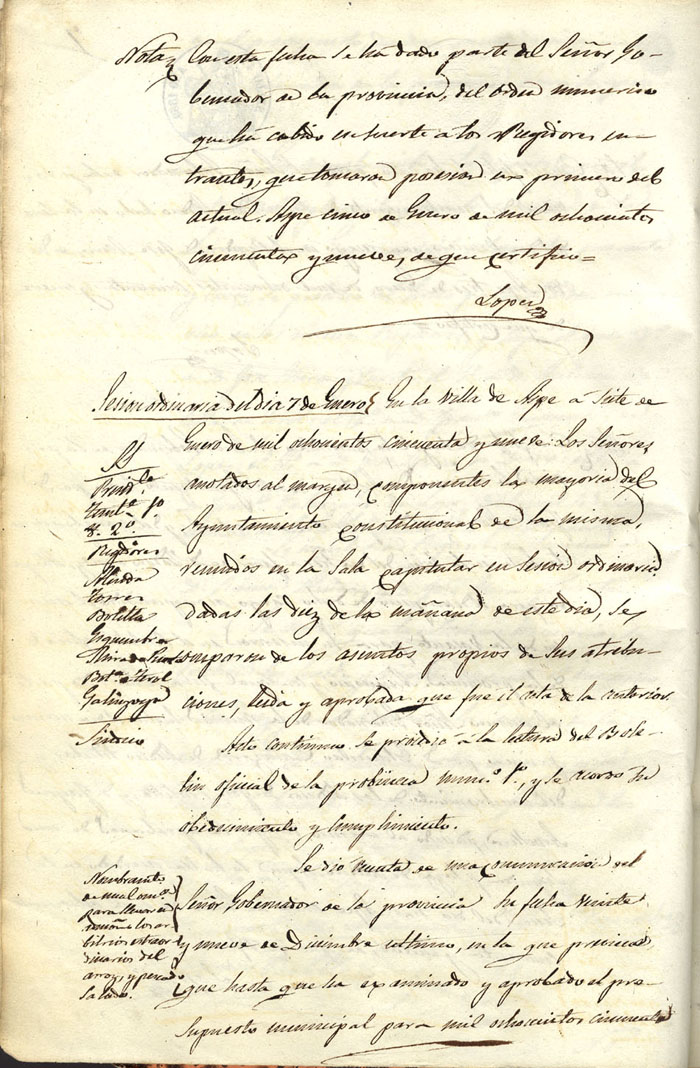 Nota Con esta fecha se ha dado parte del Señor Go-
bernador de la provincia, del orden numerico
que ha cabido en suerte a los Regidores en-
trantes, que tomaron posesion en primero del
actual. Aspe cinco de Enero de mil ochocientos
cincuenta y nueve, de que certifico =
Lopez
Sesion ordinaria del dia 7 de Enero En la Villa de Aspe à Siete de
Enero de mil ochocientos cincuenta y nueve: Los Señores
anotados al margen, componentes la mayoria del
Ayuntamiento constitucional de la misma,
reunidos en la Sala capitular en Sesion ordinaria
dadas las diez de la mañana de este dia, se
ocuparon de los asuntos propios de sus atribu-
ciones, leida y aprobada que fue el acta de la anterior.
SS
Presid.te
Ten.te 1º
2º
Regidores
Almodo
Torres
Botella
Esquembre
Mira de Puerto
Bot.a Terol
Galinsoga
Sindico
Acto continuo se procedió à la lectura del Bole-
tin oficial de la provincia num.º 1º, y se acordó su
obedecimiento y cumplimiento.
Se dio cuenta de una comunicacion del
Señor Gobernador de la provincia su fecha veinte
y nueve de Diciembre ultimo, en la que previene
que hasta que ha examinado y aprobado el pre-
supuesto municipal para mil ochocientos cincuenta
Nombramto
de una com.on
para llevar a
los ar
bitrios estraor
dinarios del
arroz, y pescado
Salado.